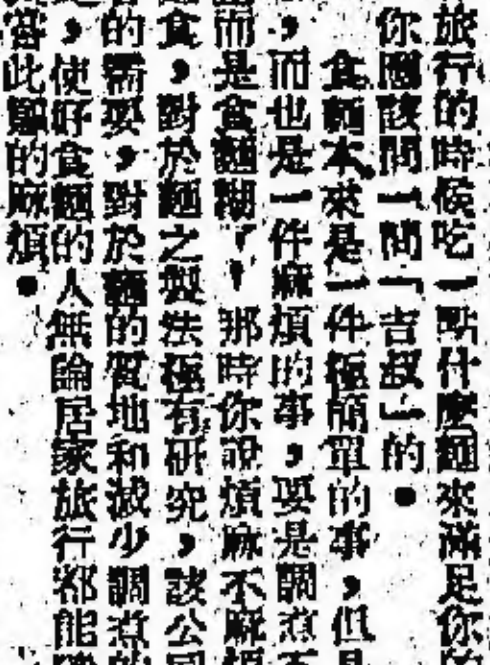 旅行的時候吃一點什麼麵來滿足你
你應該問一問「吉叔」的。
食麵本來是一件極簡單的事，但是
，而也是一件麻煩的事，要是調煮不
而是食麵糊了，那時你說煩麻不麻煩
食，對於麵之製法極有研究，該公司
的需要，對於麵的質地和減少調煮的
，使好食麵的人無論居家旅行都能
嘗此麵的麻煩。